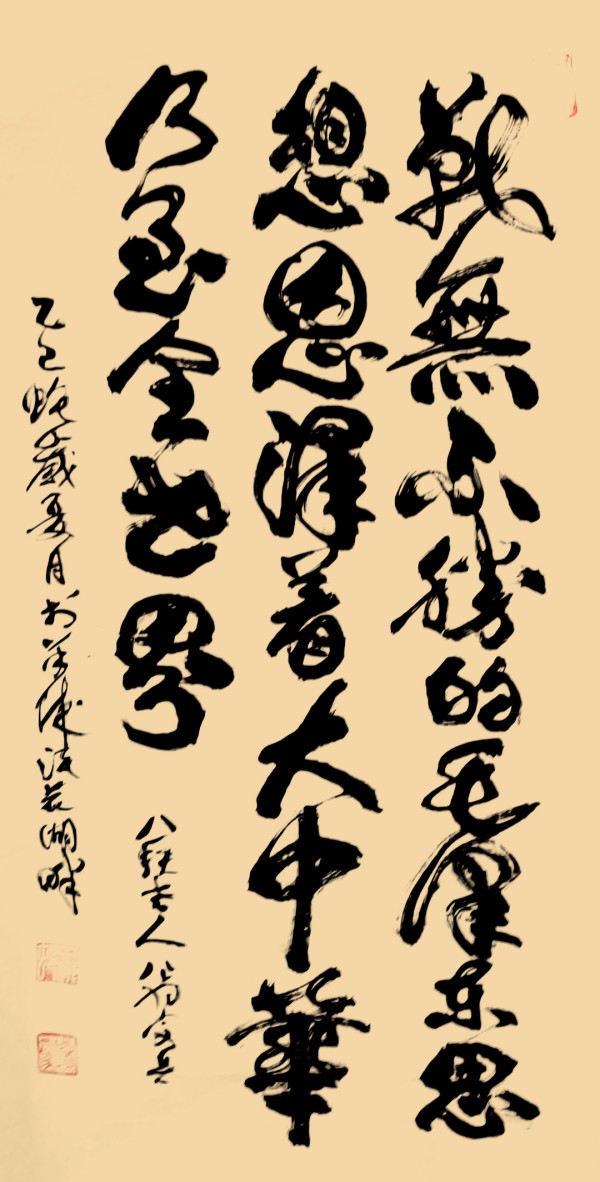 戰無不勝的毛澤东思
想恩澤着大中華
乃至全世界
八秩老人 翁文兵
乙巳蛇歲夏月于 城 湖畔